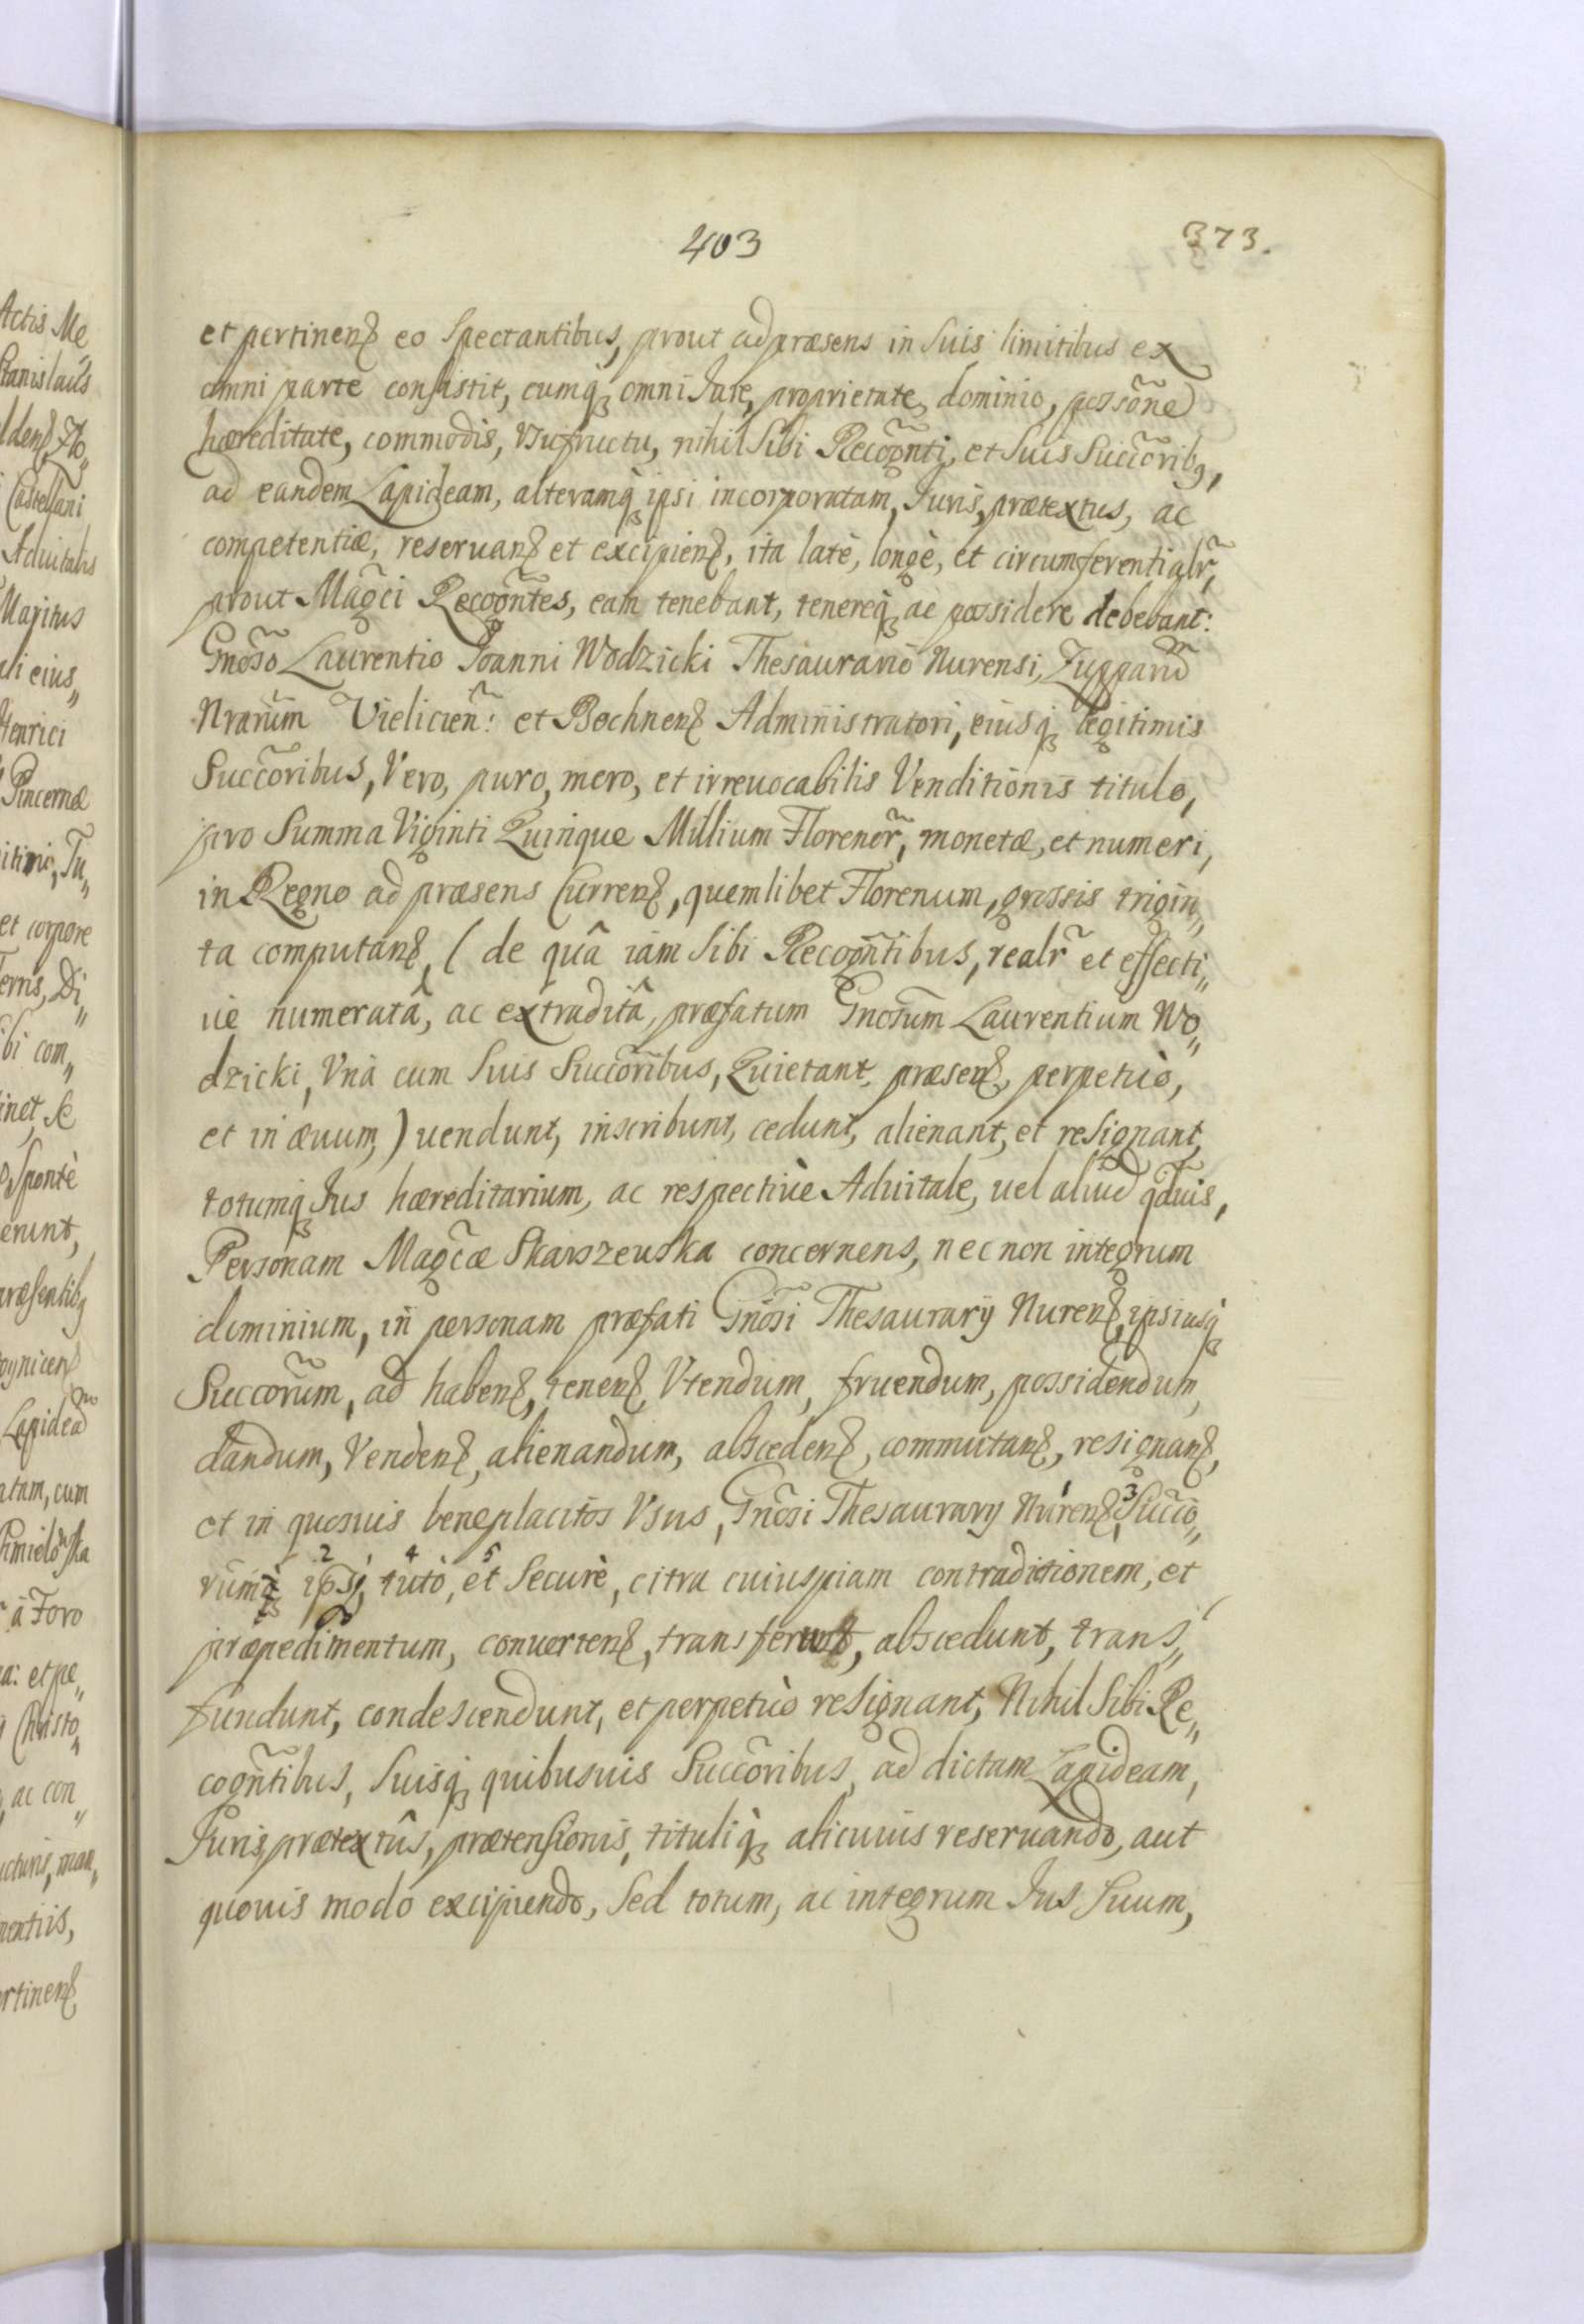 403
373.
et pertinenʒ eo Spectantibus, prout ad præsens in Suis limitibus ex
omni parte consistit, cumqꝫ omni Jure, proprietate, dominio, possõne
hæreditate, commodis, Vsufructu, nihil Sibi Recog̃nti, et Suis Succõribꝯ,
ad eandem Lapideam, alteramqꝫ ipsi incorporatam, Juris, prætextus, ac
competentiæ, reseruanʒ et excipienʒ, ita latè, longè, et circumferentialr̃,
prout Mag̃ci Recog̃ntes, eam tenebant, tenereqꝫ ac possidere debebant:
Gnõso Laurentio Joanni Wodzicki Thesaurario Nurensi, Zupparũ
Nrarũm Vielicien̄: et Bochnenʒ Administratori, eiusqꝫ legitimis
Succõribus, Vero, puro, mero, et irreuocabilis Venditionis titulo,
pro Summa Viginti Quinque Millium Florenor̃, monetæ, et numeri,
in Regno ad præsens Currenʒ, quemlibet Florenum, grossis trigin„
ta computanʒ, (de quâ iam Sibi Recog̃ntibus, realr̃ et effecti„
uè numeratâ, ac extraditâ, præfatum Gnõsum Laurentium Wo„
dzicki, Vnà cum Suis Succõribus, Quietant, præsenʒ, perpetuò,
et in æuum,) uendunt, inscribunt, cedunt, alienant, et resignant,
totumqꝫ Jus hæreditarium, ac respectiuè Aduitale, uel aliud qduis,
Personam Mag̃cæ Skarszeuska concernens, nec non integrum
dominium, in personam præfati Gnõsi Thesaurarij Nurenʒ, ipsiusqꝫ
Succorũm, ad habenʒ, tenenʒ, Vtendum, fruendum, possidendum,
dandum, Vendenʒ, alienandum, abscedenʒ, commutanʒ, resignanʒ,
et in quosuis beneplacitos Vsus, Gnõsi Thesaurarij Nurenʒ, Succõ„
rumqꝫ ipsiꝰ, tutò, et Securè, citra cuiuspiam contradictionem, et
præpedimentum, conuertenʒ, transferunt, abscedunt, trans„
fundunt, condescendunt, et perpetuò resignant, Nihil Sibi Re„
cog̃ntibus, Suisqꝫ quibusuis Succõribus, ad dictam Lapideam,
Juris, prætextûs, prætensionis, tituliqꝫ alicuius reseruando, aut
quouis modo excipiendo, Sed totum, ac integrum Jus Suum,